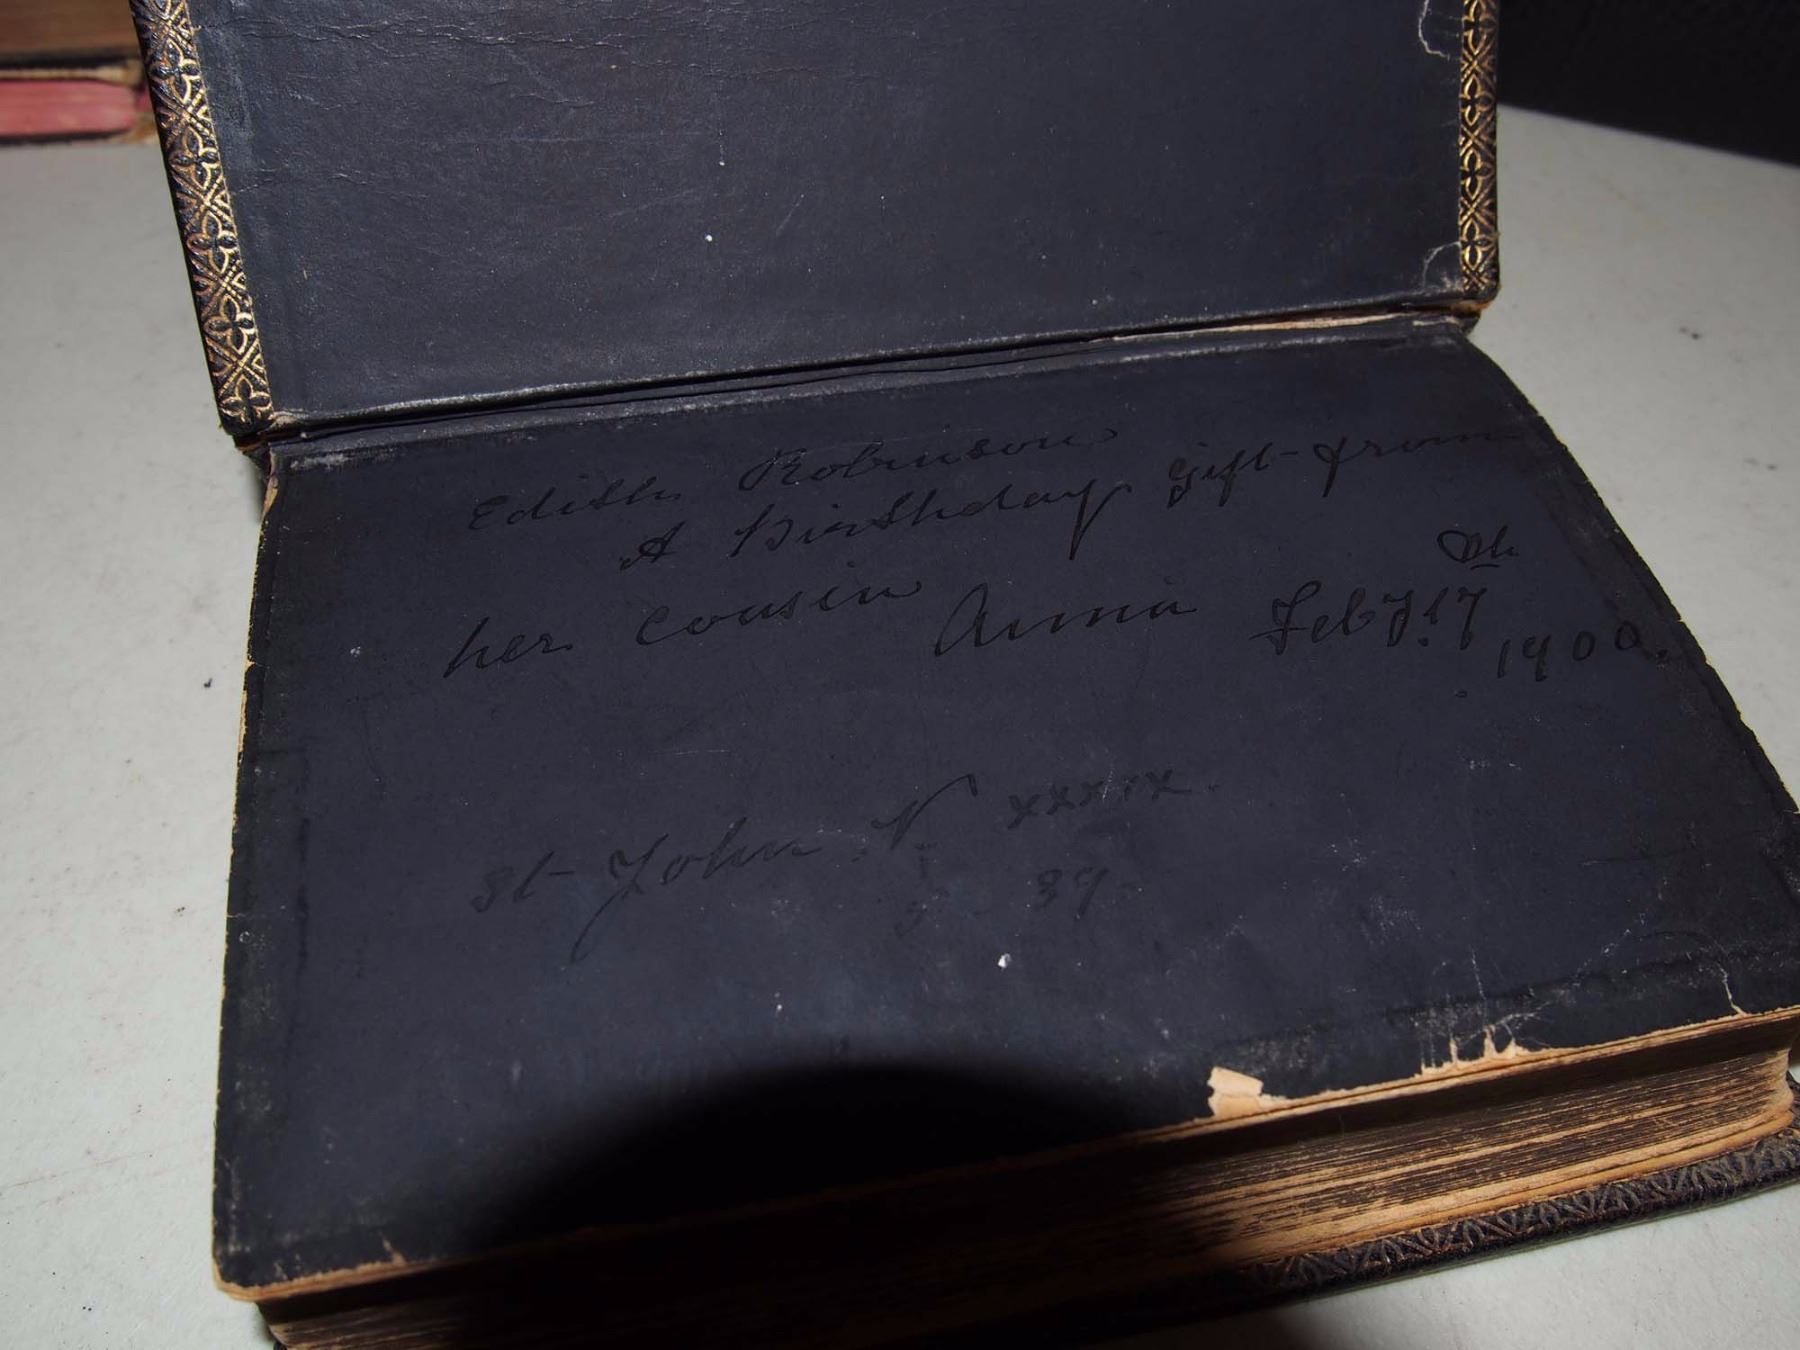 Edith Robinson
A Birthday gift from
her cousin Anna Feby. 17th
1900.
St John V. xxxix.
5 39